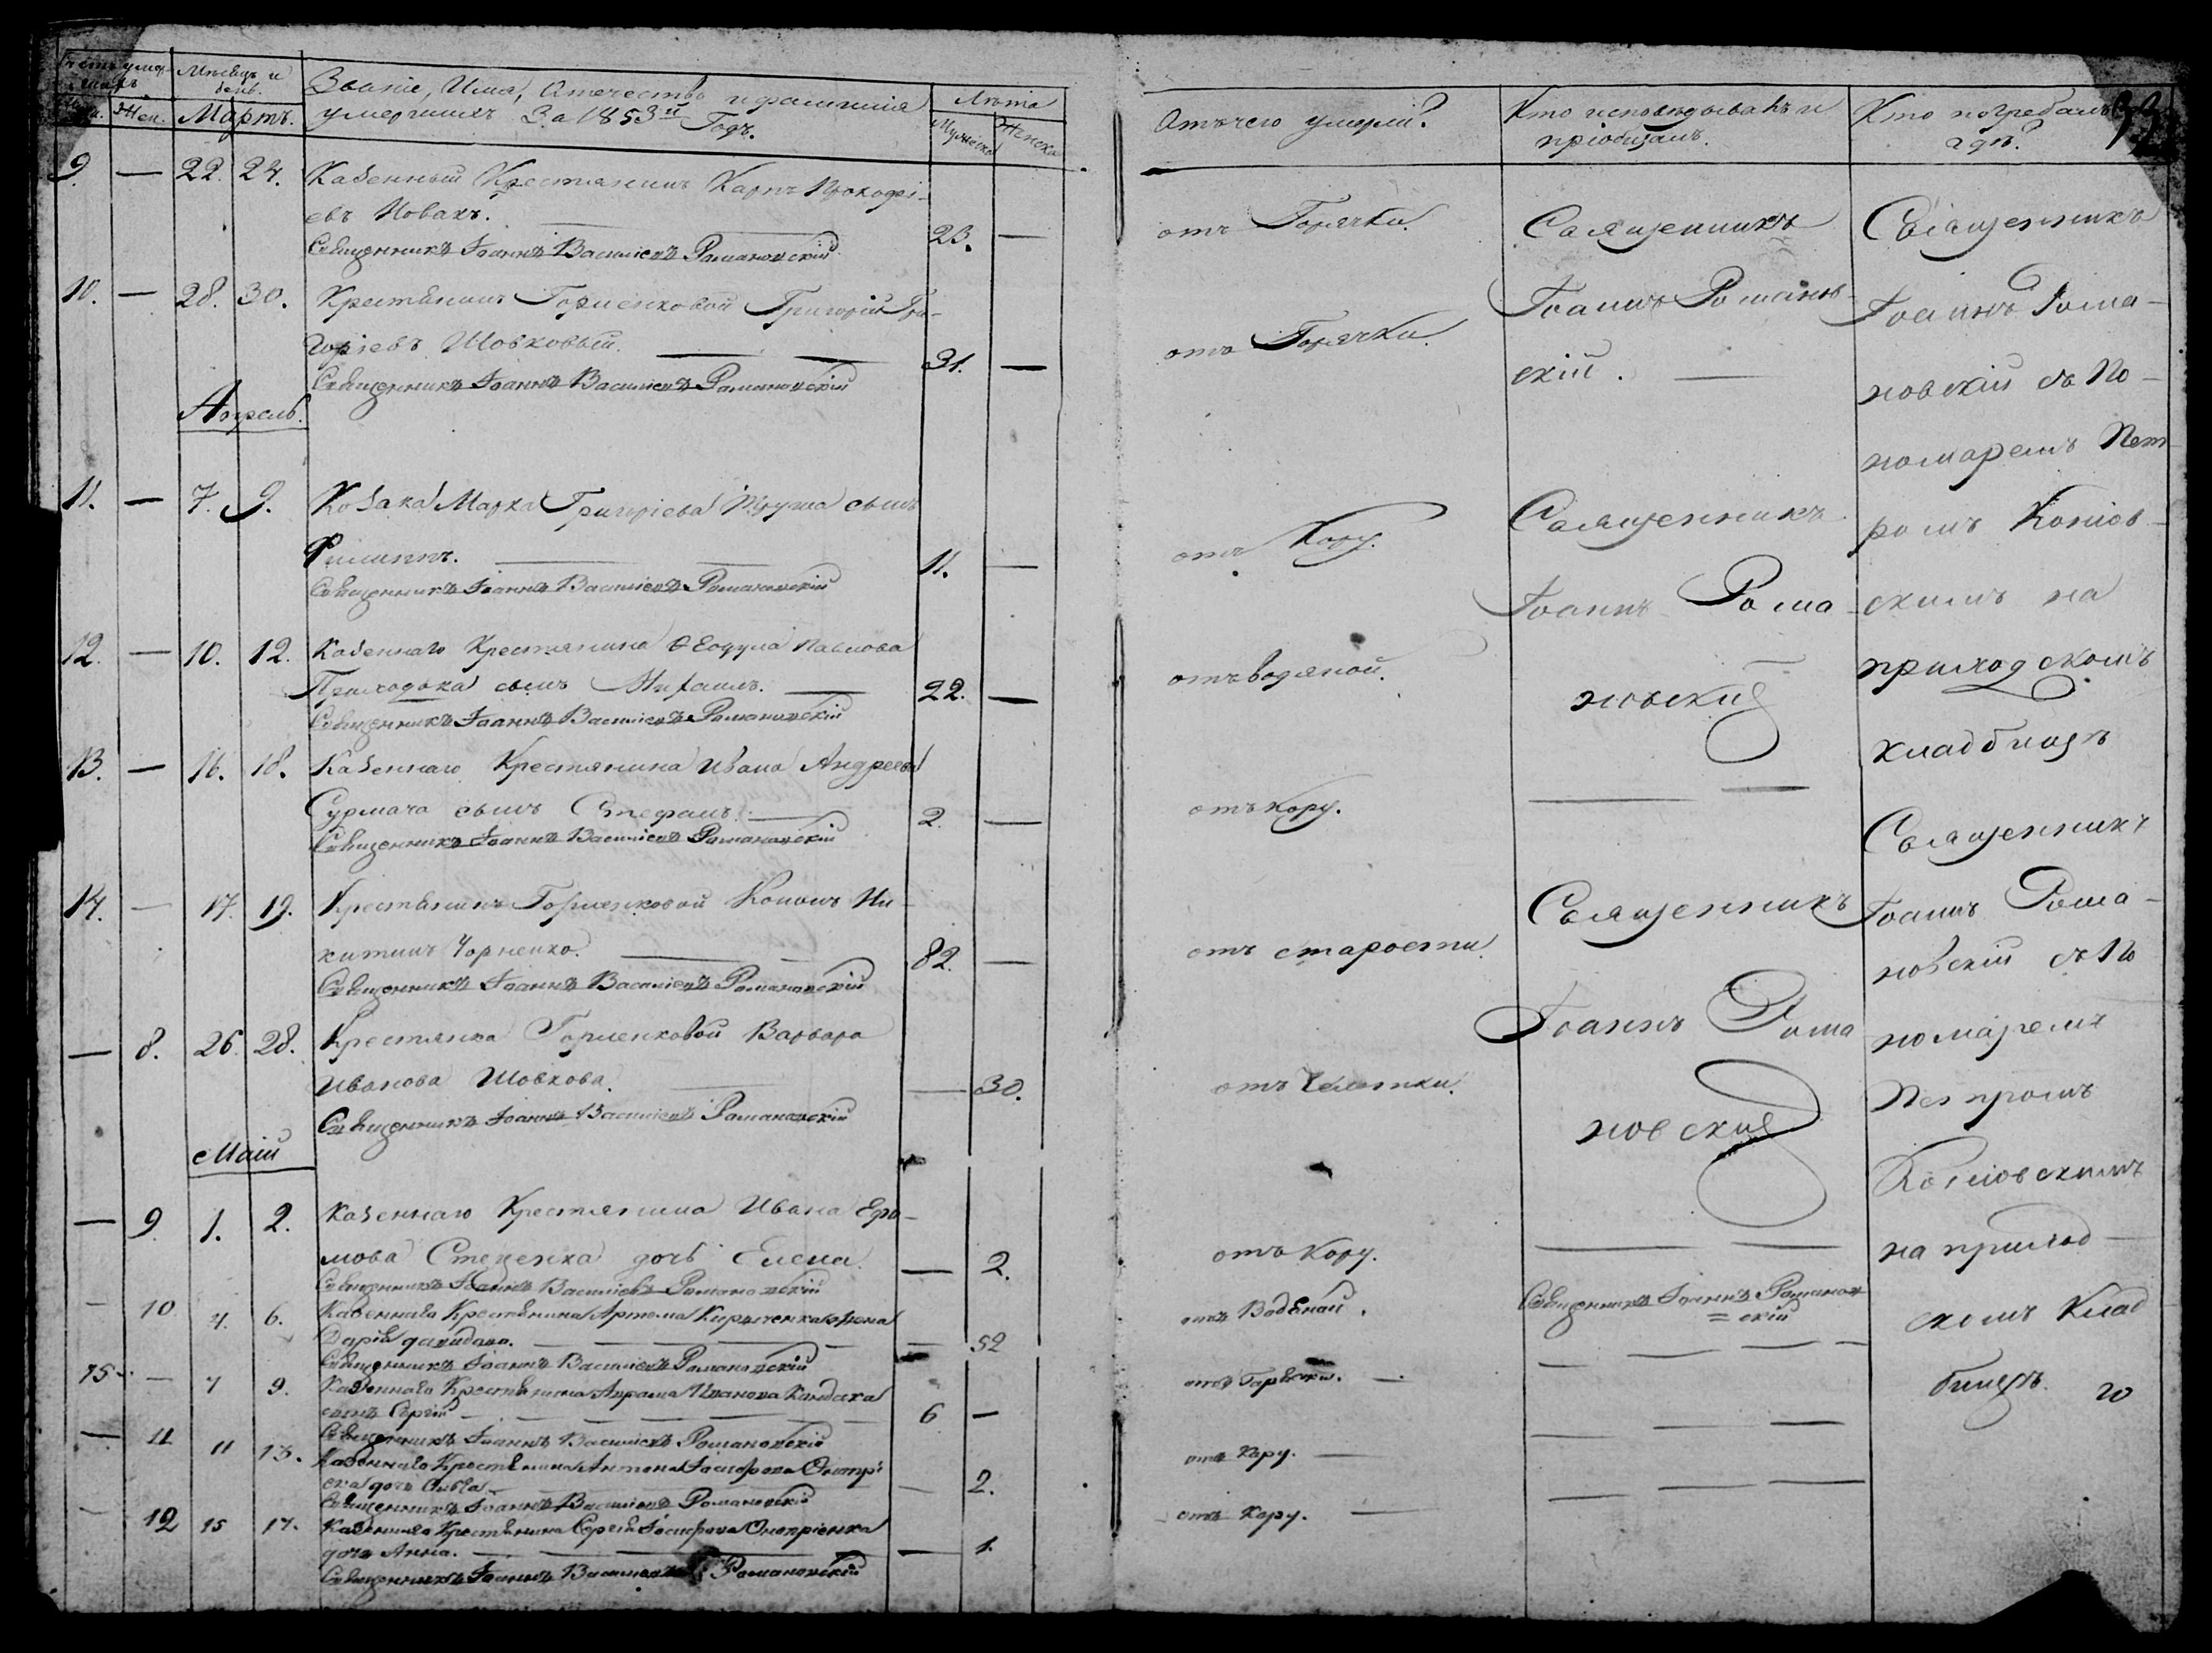 Счетъ умер-
шихъ
Муж. Жен.
Мѣсяцъ и
день.
Мартъ.
Званіе, Имя, Отечество и фамилія
умершихъ За 1853й Годъ.
Лѣта
Мужеска Женска
9. — 22. 24. Казенный Крестянинъ Карпъ Прокофі-
евъ Новакъ. — 23. —
Священникъ Іоаннъ Василіевъ Романовскій
10. — 28. 30. Крестянинъ Горленковой Григорій Гри-
горіевъ Шовковый. — 31. —
Священникъ Іоаннъ Василіевъ Романовскій
Апрель.
11. — 7. 9. Козака Марка Григоріева сынъ
Филиппъ. — 11. —
Священникъ Іоаннъ Василіевъ Романовскій
12. — 10. 12. Казеннаго Крестянина Ѳеодула Павлова
Приходька сынъ Михаилъ. — 22. —
Священникъ Іоаннъ Василіевъ Романовскій
13. — 16. 18. Казеннаго Крестянина Ивана Андреева
Сурмача сынъ Стефанъ. — 2. —
Священникъ Іоаннъ Василіевъ Романовскій
14. — 17. 19. Крестянинъ Горленковой Кононъ Ни-
китинъ Чорненко. — 82. —
Священникъ Іоаннъ Василіевъ Романовскій
— 8. 26. 28. Крестянка Горленковой Варвара
Иванова Шовкова. — 30.
Священникъ Іоаннъ Василіевъ Романовскій
Маій
— 9. 1. 2. Казеннаго Крестянина Ивана Ефи-
мова Стеценка дочь Елена. — 2.
Священникъ Іоаннъ Василіевъ Романовскій
— 10 4. 6. Казеннаго Крестянина Артема Кириченка жена
Дарія давидова. — 52
Священникъ Іоаннъ Василіевъ Романовскій
15. — 7 9. Казеннаго Крестянина Аврама Иванова
сынъ Сергій — 6 —
Священникъ Іоаннъ Василіевъ Романовскій
— 11 11 13. Казеннаго Крестянина Антона Іосифова Онопрі-
енка дочь — 2.
Священникъ Іоаннъ Василіевъ Романовскій
— 12 15 17. Казеннаго Крестянина Сергія Іосифова Онопріенка
дочь Анна. — 1.
Священникъ Іоаннъ Василіевъ Романовскій
Отъ чего умерли?
отъ Горячки.
отъ Горячки.
отъ Кору.
отъ водяной.
отъ кору.
отъ старости.
отъ
отъ Кору.
отъ Водяной.
отъ Горячки. —
отъ Кору. —
отъ Кору. —
Кто исповѣдывалъ и
пріобщалъ.
Священникъ
Іоаннъ Романов-
скій. —
Священникъ
Іоаннъ Рома-
новскій
— —
Священникъ
Іоаннъ Рома
новскій
— —
Священникъ Іоаннъ Романов=
скій
Кто погребалъ и
гдѣ?
Священникъ
Іоаннъ Рома-
новскій съ По-
номаремъ Пет
ромъ
скимъ на
приходскомъ
кладбищѣ
Священникъ
Іоаннъ Рома-
новскій съ По
номаремъ
Петромъ
на приход-
скомъ Клад
бищѣ.